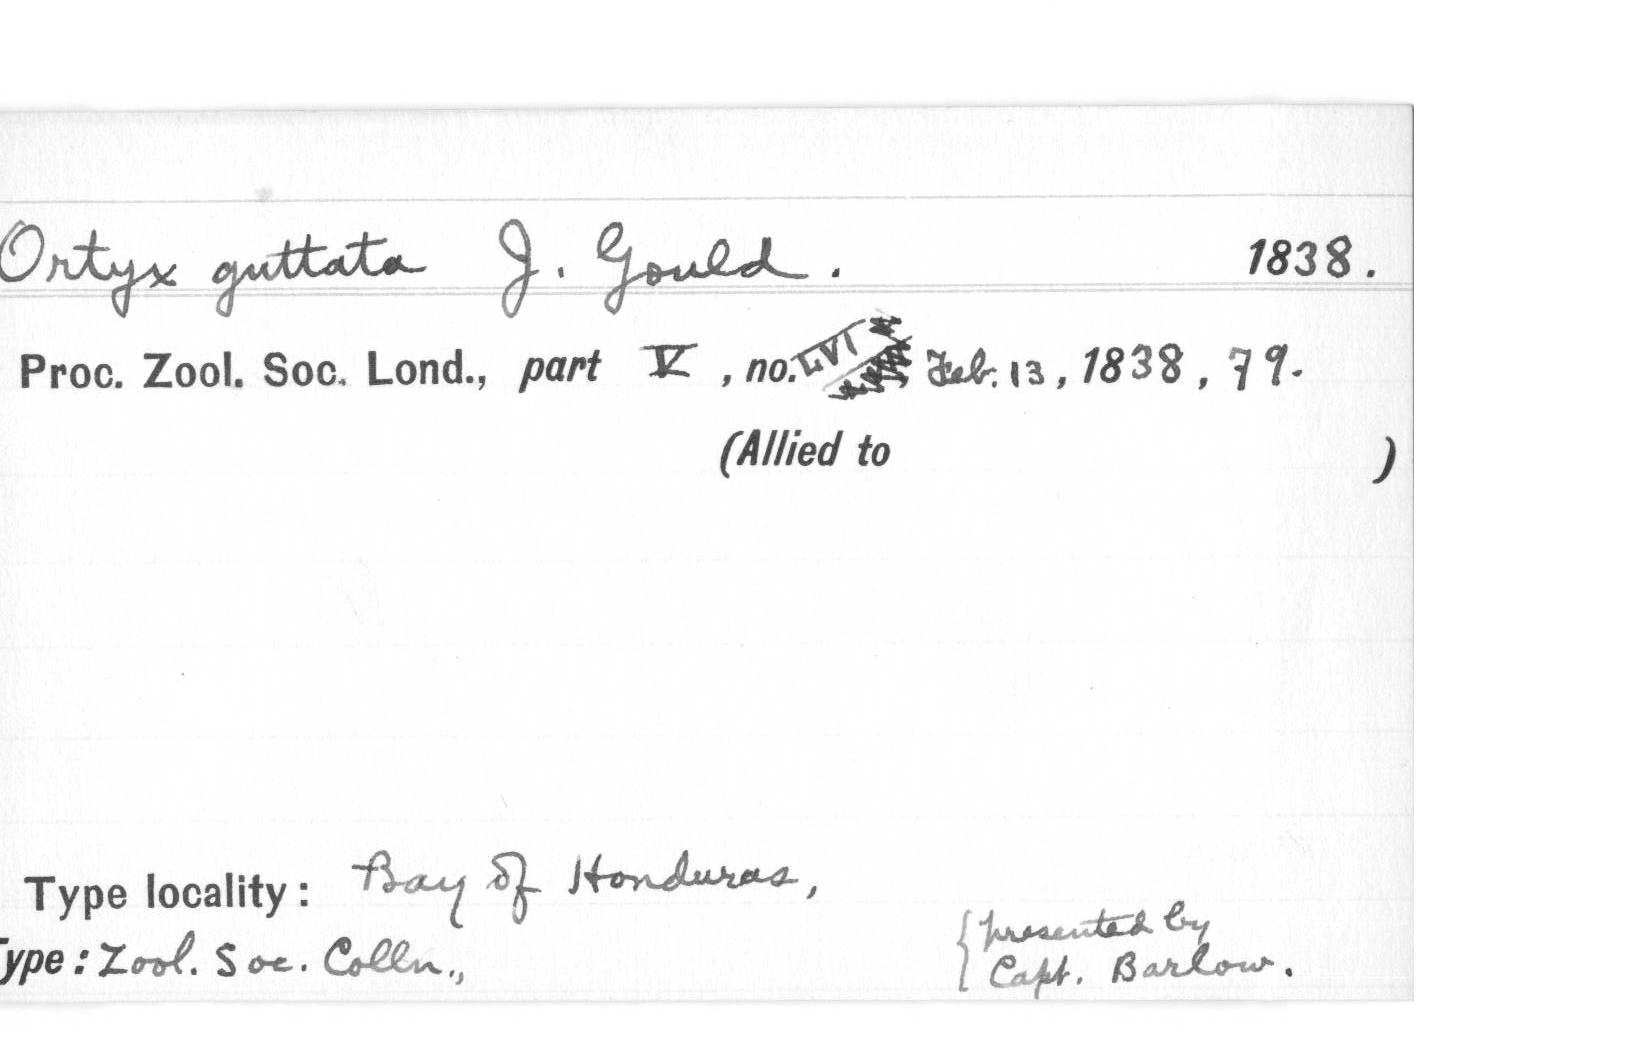 Ortyx guttata J. Gould. 1838.
Proc. Zool. Soc. Lond., part V, no. LVI Feb. 13, 1838, 79.
(Allied to )
Type locality: Bay of Honduras,
Type: Zool. Soc. Colln., {presented by
Capt. Barlow.